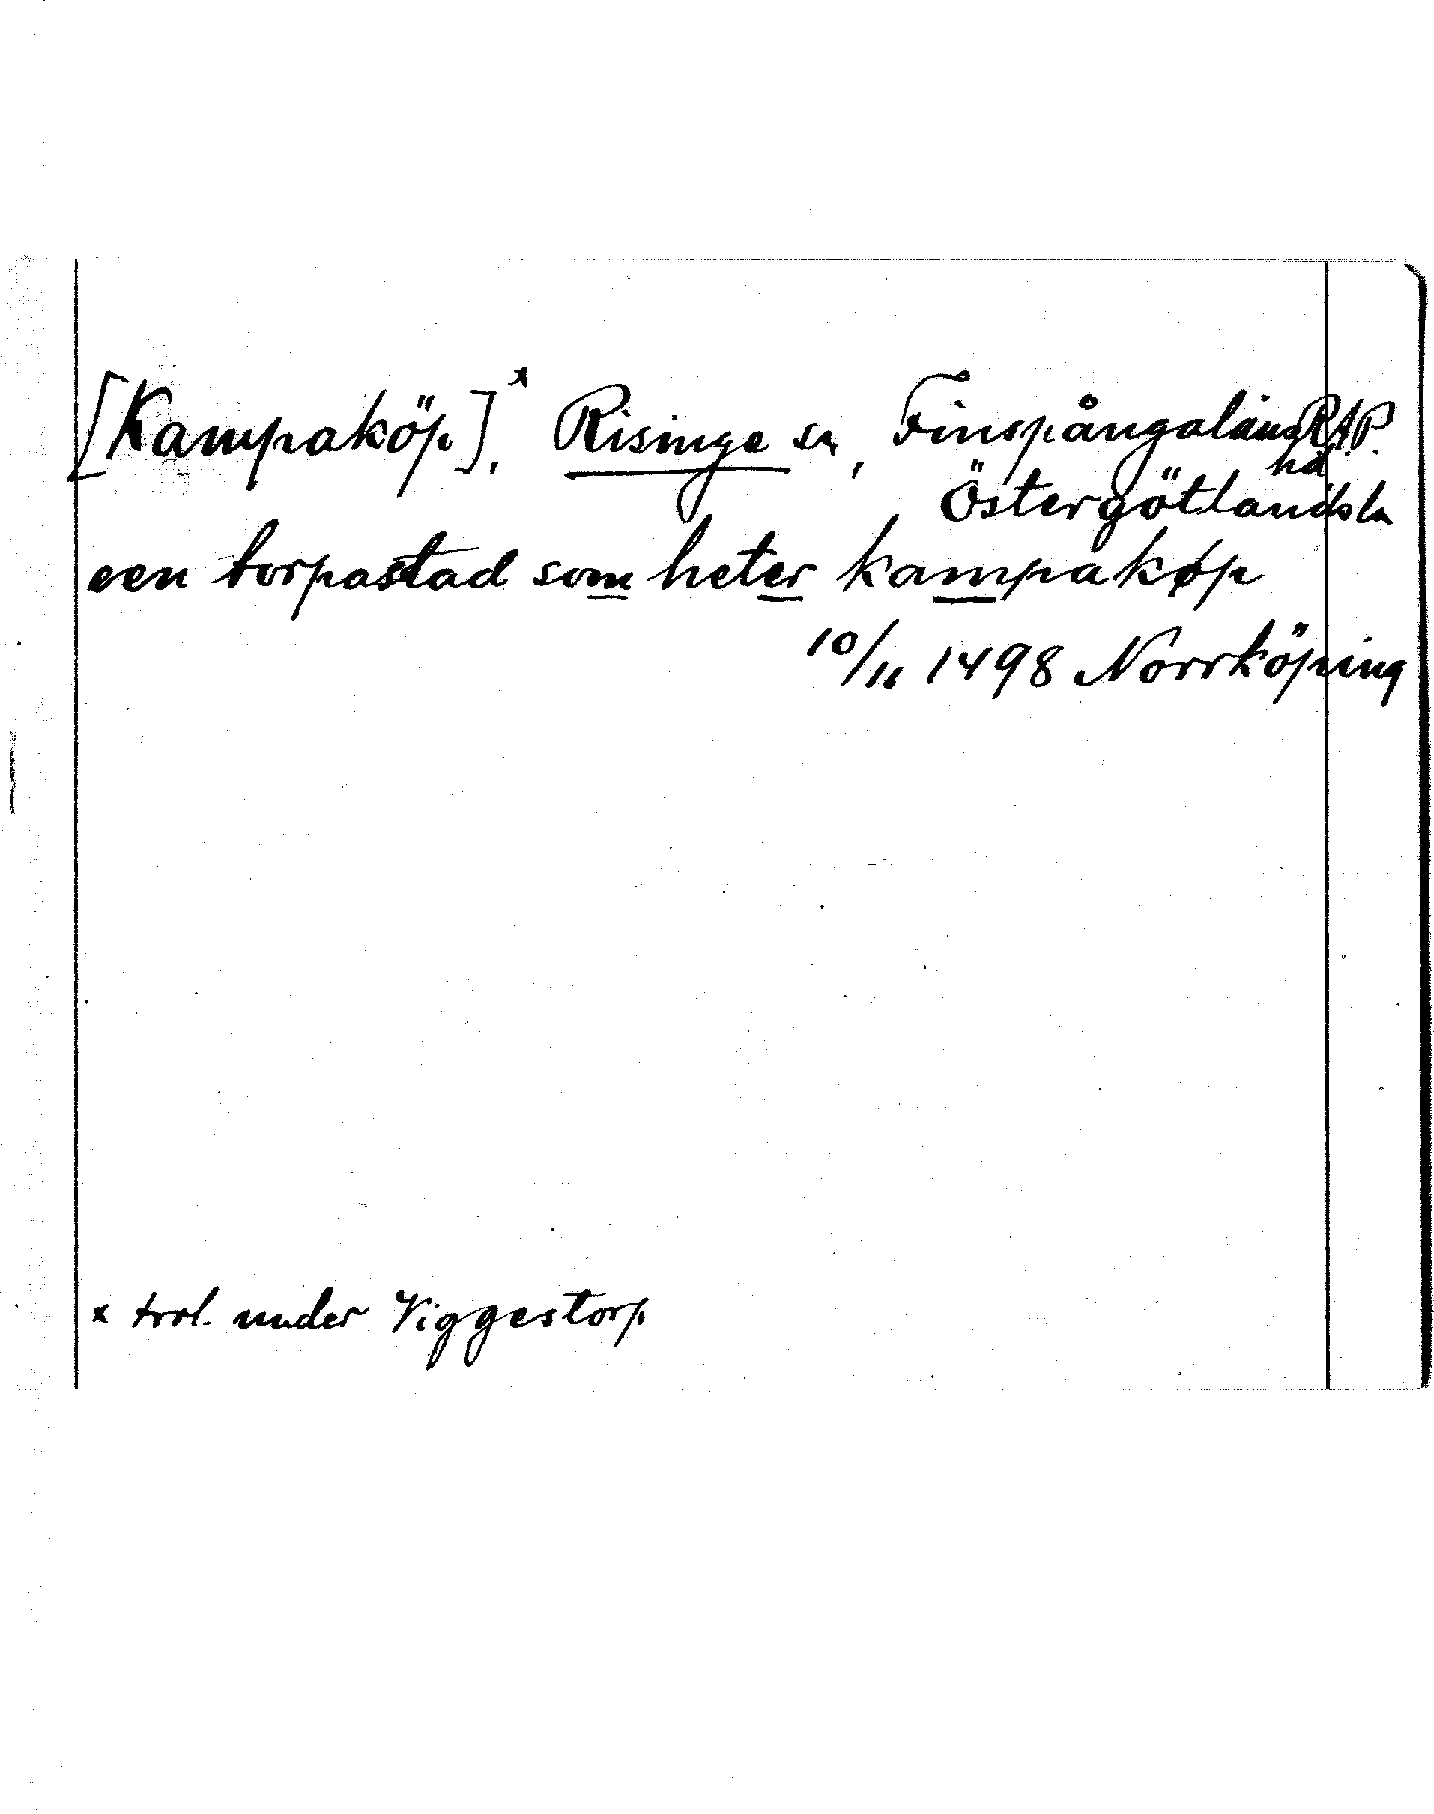 [Kampaköp]ˣ, Risinge sn, Finspångaläns RAP.
hd
Östergötlands ln
een torpastad som heter kampakøp
10/11 1498 Norrköping
x trol. under Viggestorp